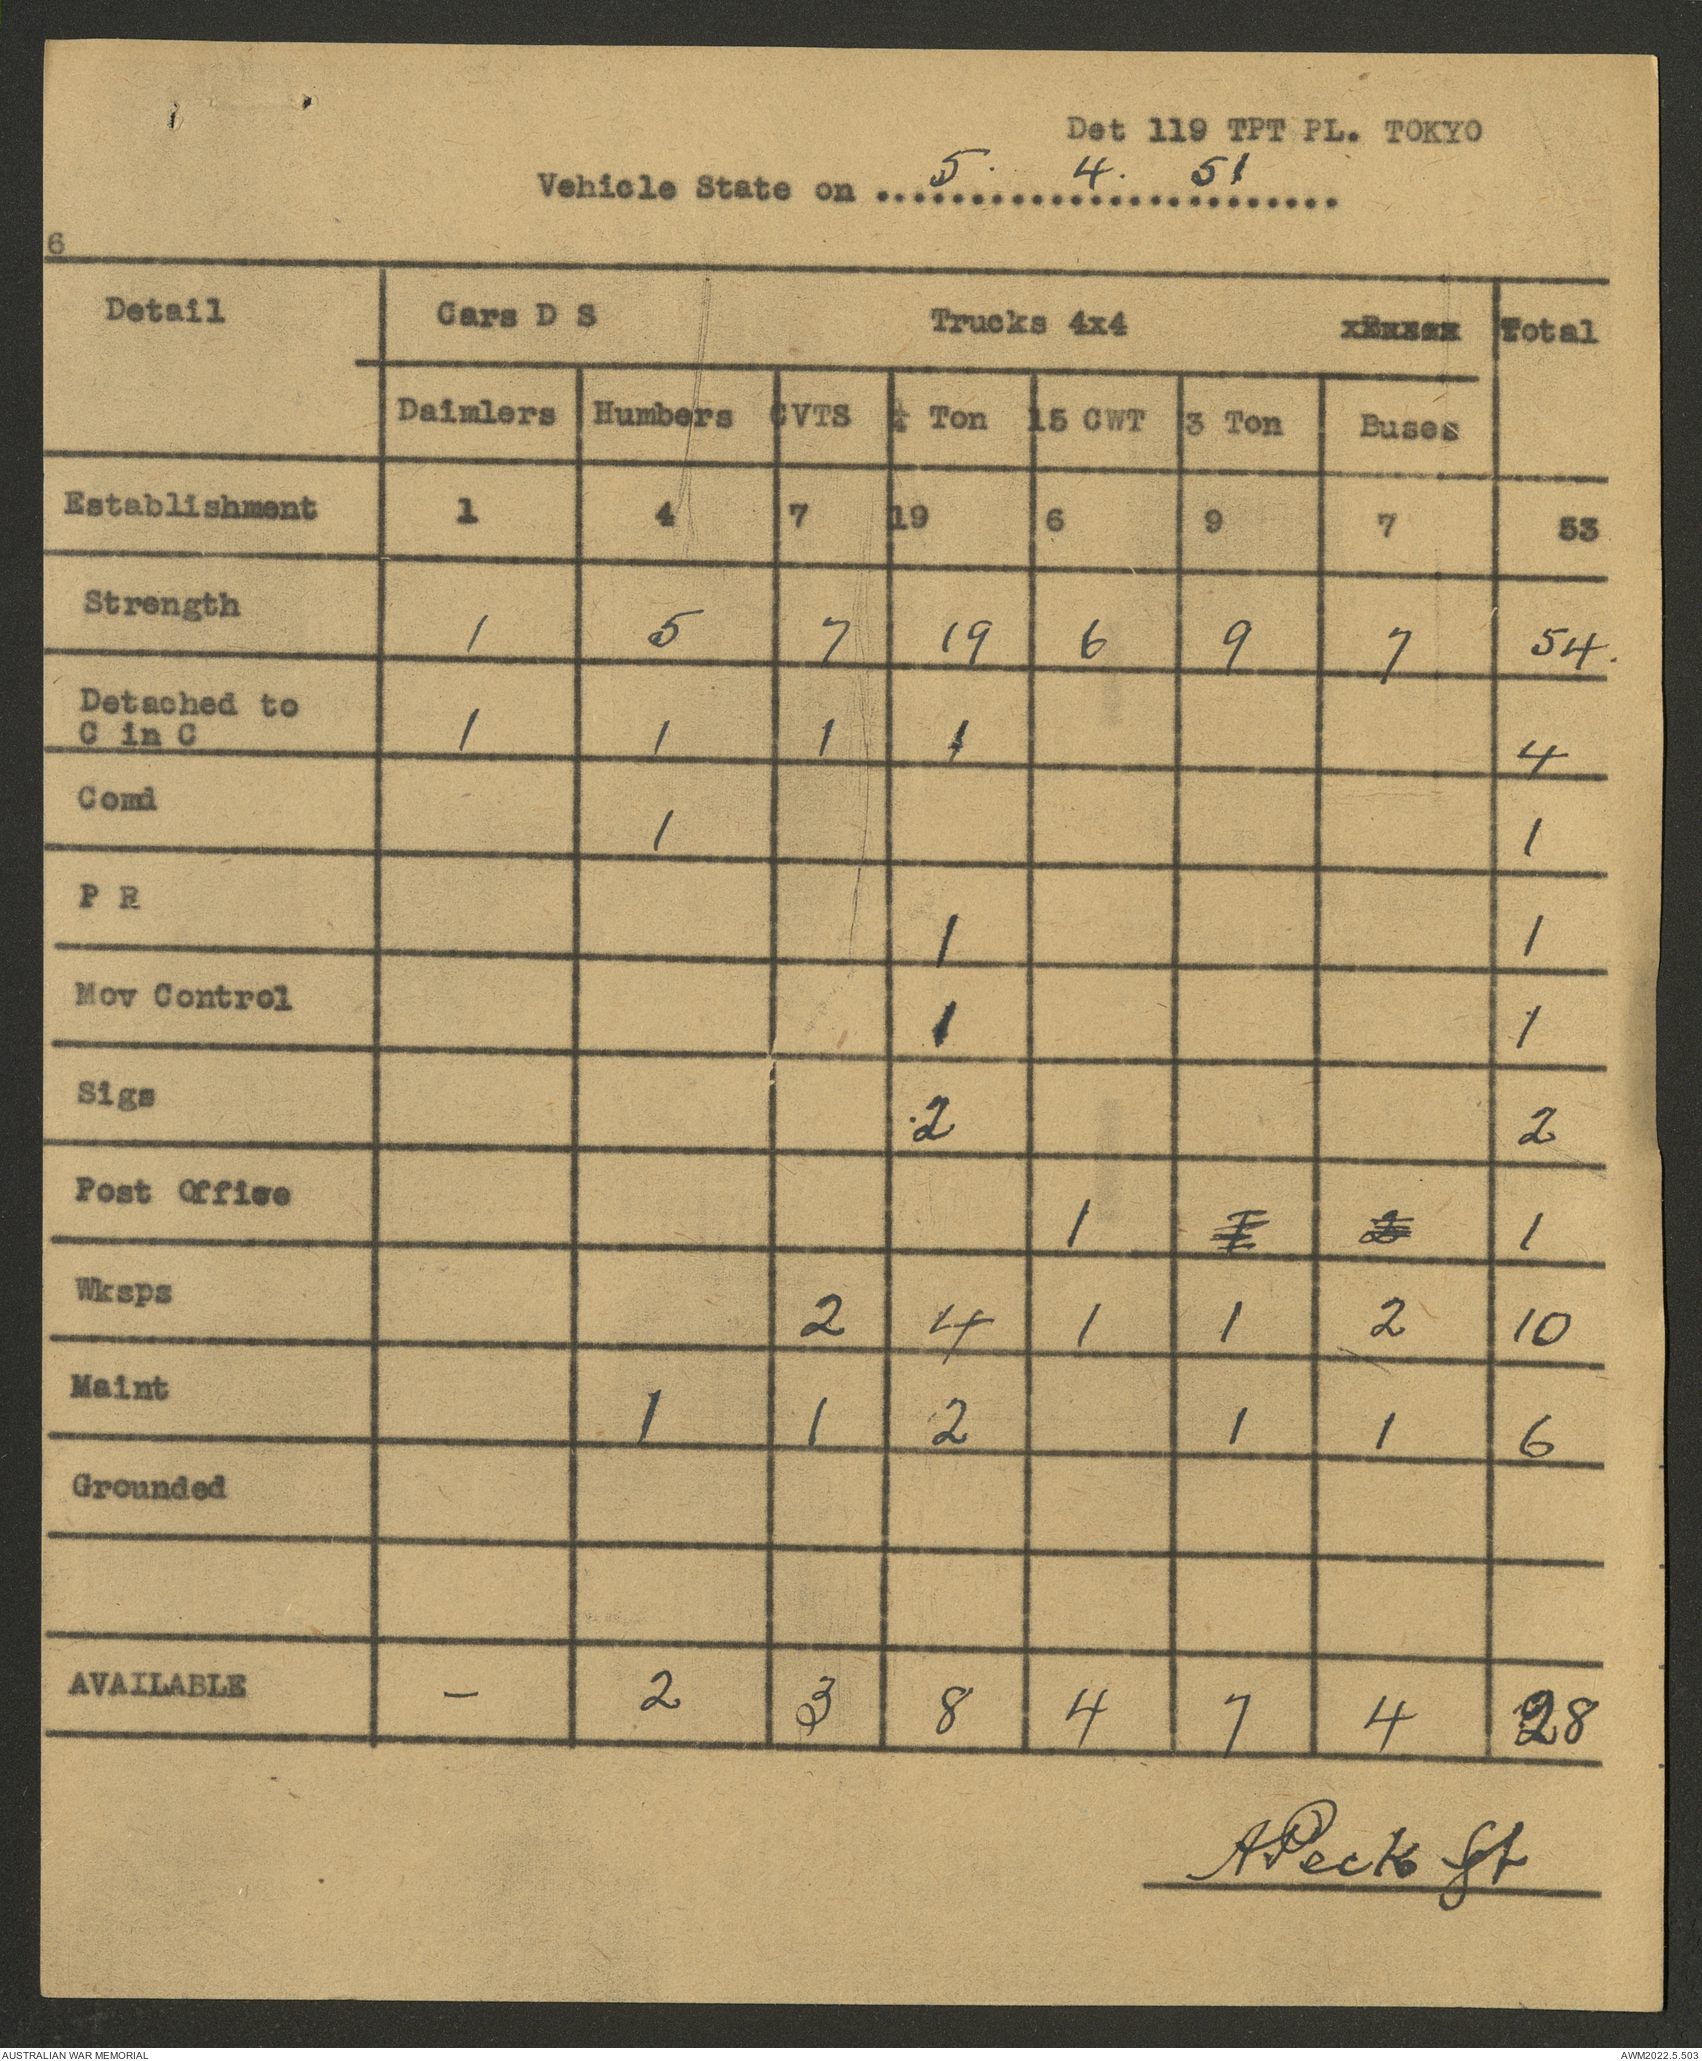 Det 119 TPT PL. TOKYO
Vehicle State on .......................... 5. 4. 51
6
Detail Cars D S Trucks 4x4 Total
Daimlers Humbers CVTS ¼ Ton 15 CWT 3 Ton Buses
Establishment 1 4 7 19 6 9 7 53
Strength 1 5 7 19 6 9 7 54.
Detached to
C in C 1 1 1 1 4
Comd 1 1
P R 1 1
Mov Control 1 1
Sigs 2 2
Post Office 1 1
Wksps 2 4 1 1 2 10
Maint 1 1 2 1 1 6
Grounded
AVAILABLE — 2 3 8 4 7 4 28
A Peck Sgt
AUSTRALIAN WAR MEMORIAL AWM2022.5.503